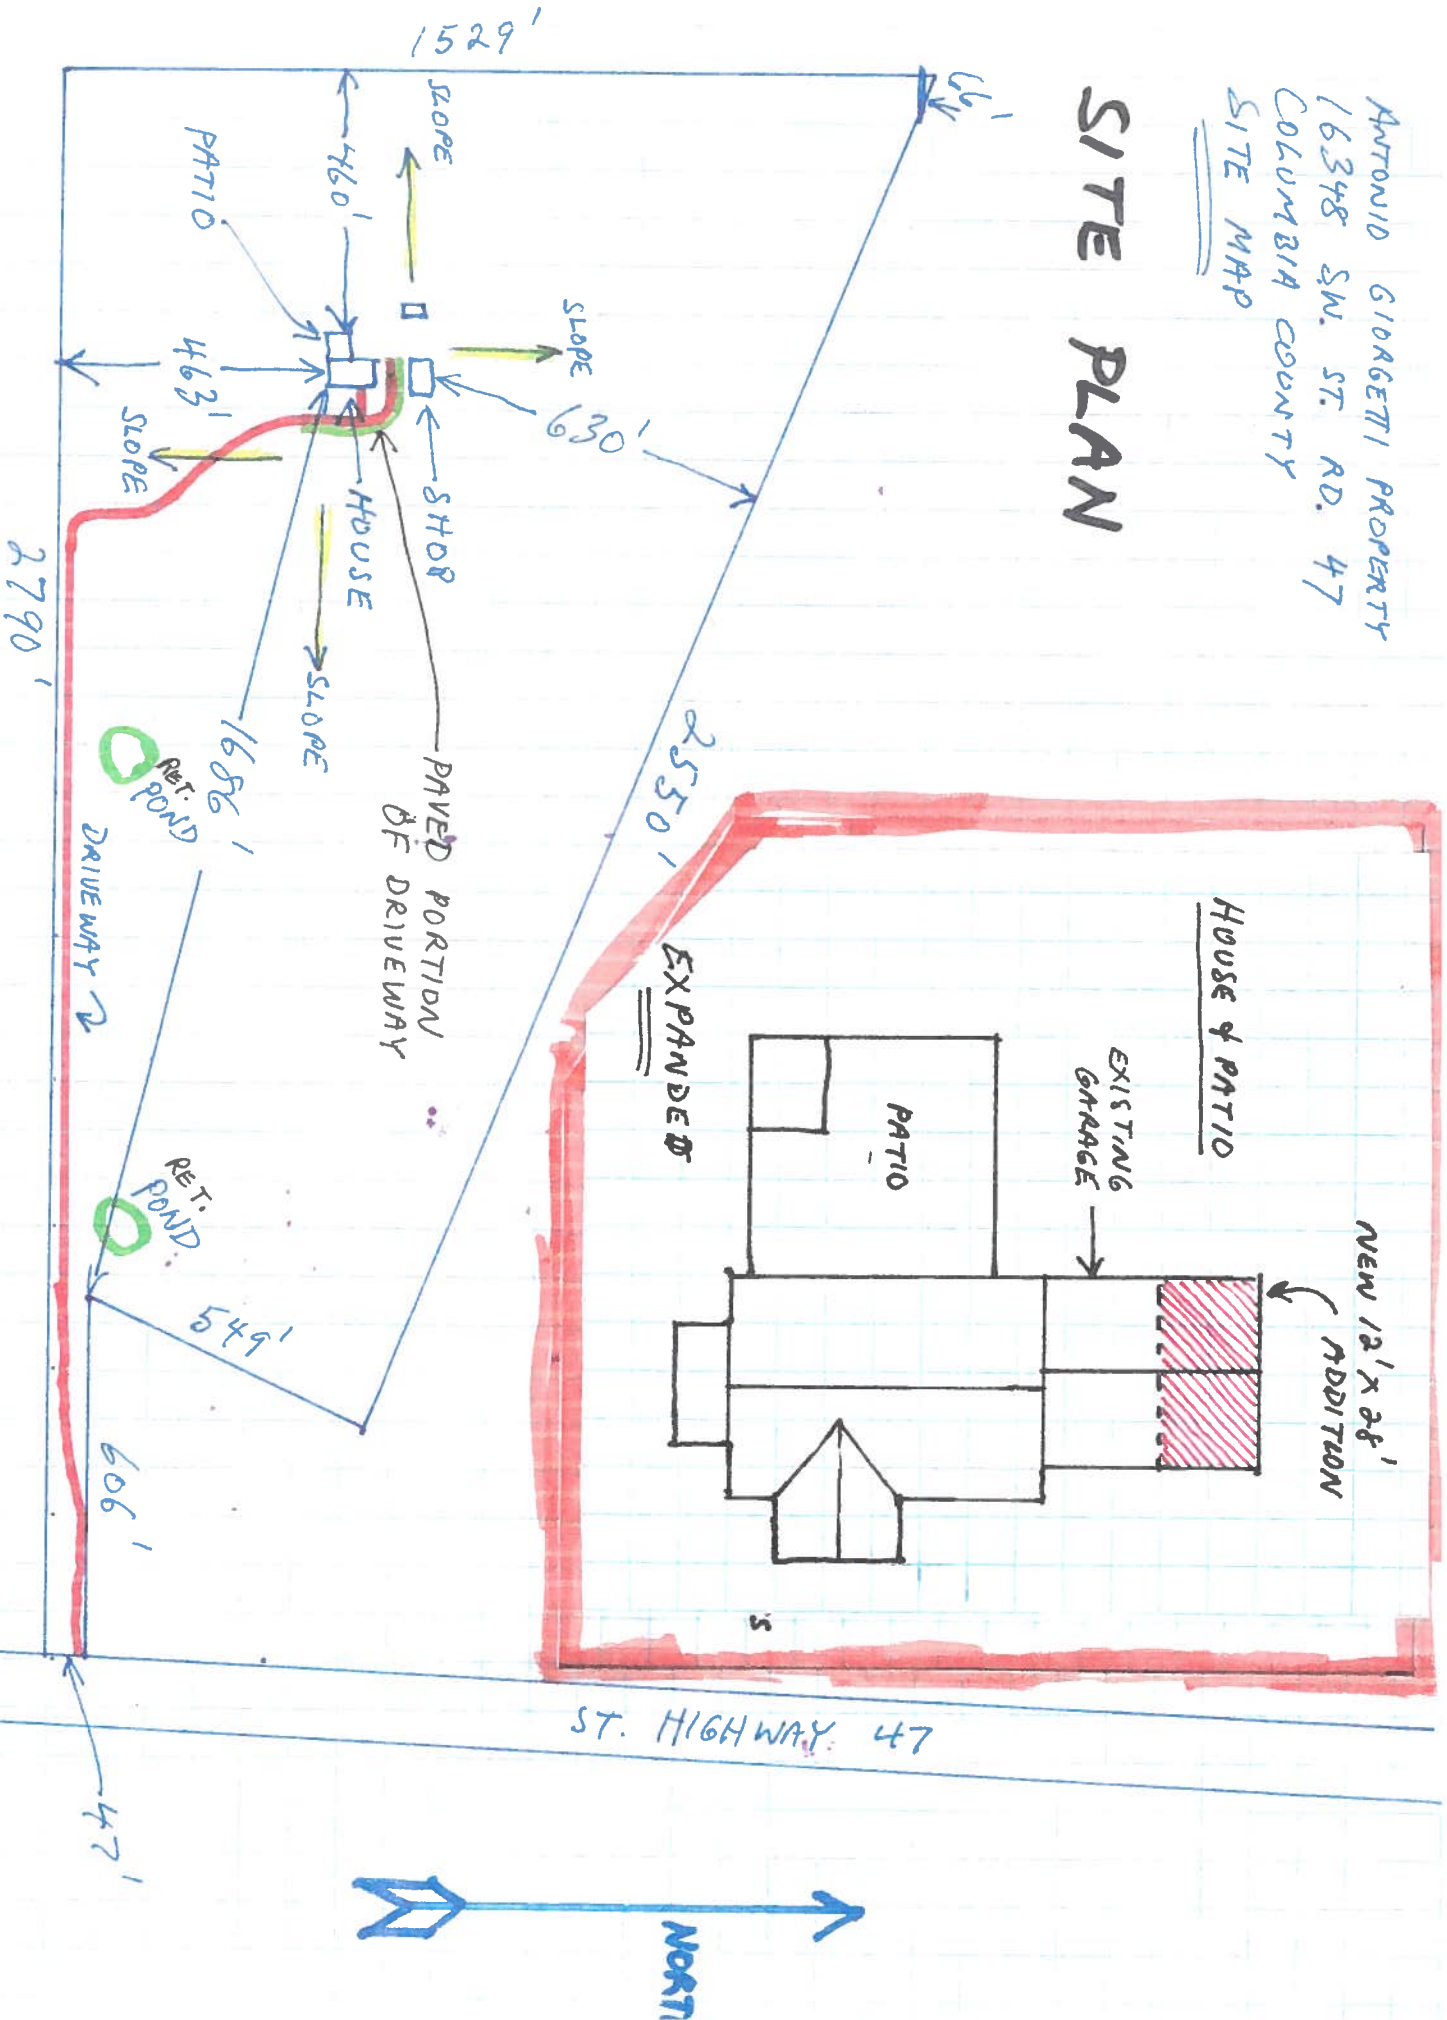 ANTONIO GIORGETTI PROPERTY
16348 SW. ST. RD. 47
COLUMBIA COUNTY
SITE MAP
SITE PLAN
66'
1529'
SLOPE
460'
PATIO
SLOPE
630'
463'
SLOPE
SHOP
HOUSE
SLOPE
2550'
PAVED PORTION
OF DRIVEWAY
1686'
RET.
POND
2790'
DRIVEWAY
RET.
POND
549'
606'
47'
HOUSE & PATIO
EXPANDED
EXISTING
GARAGE
PATIO
NEW 12' X 28'
ADDITION
S
ST. HIGHWAY 47
NORT